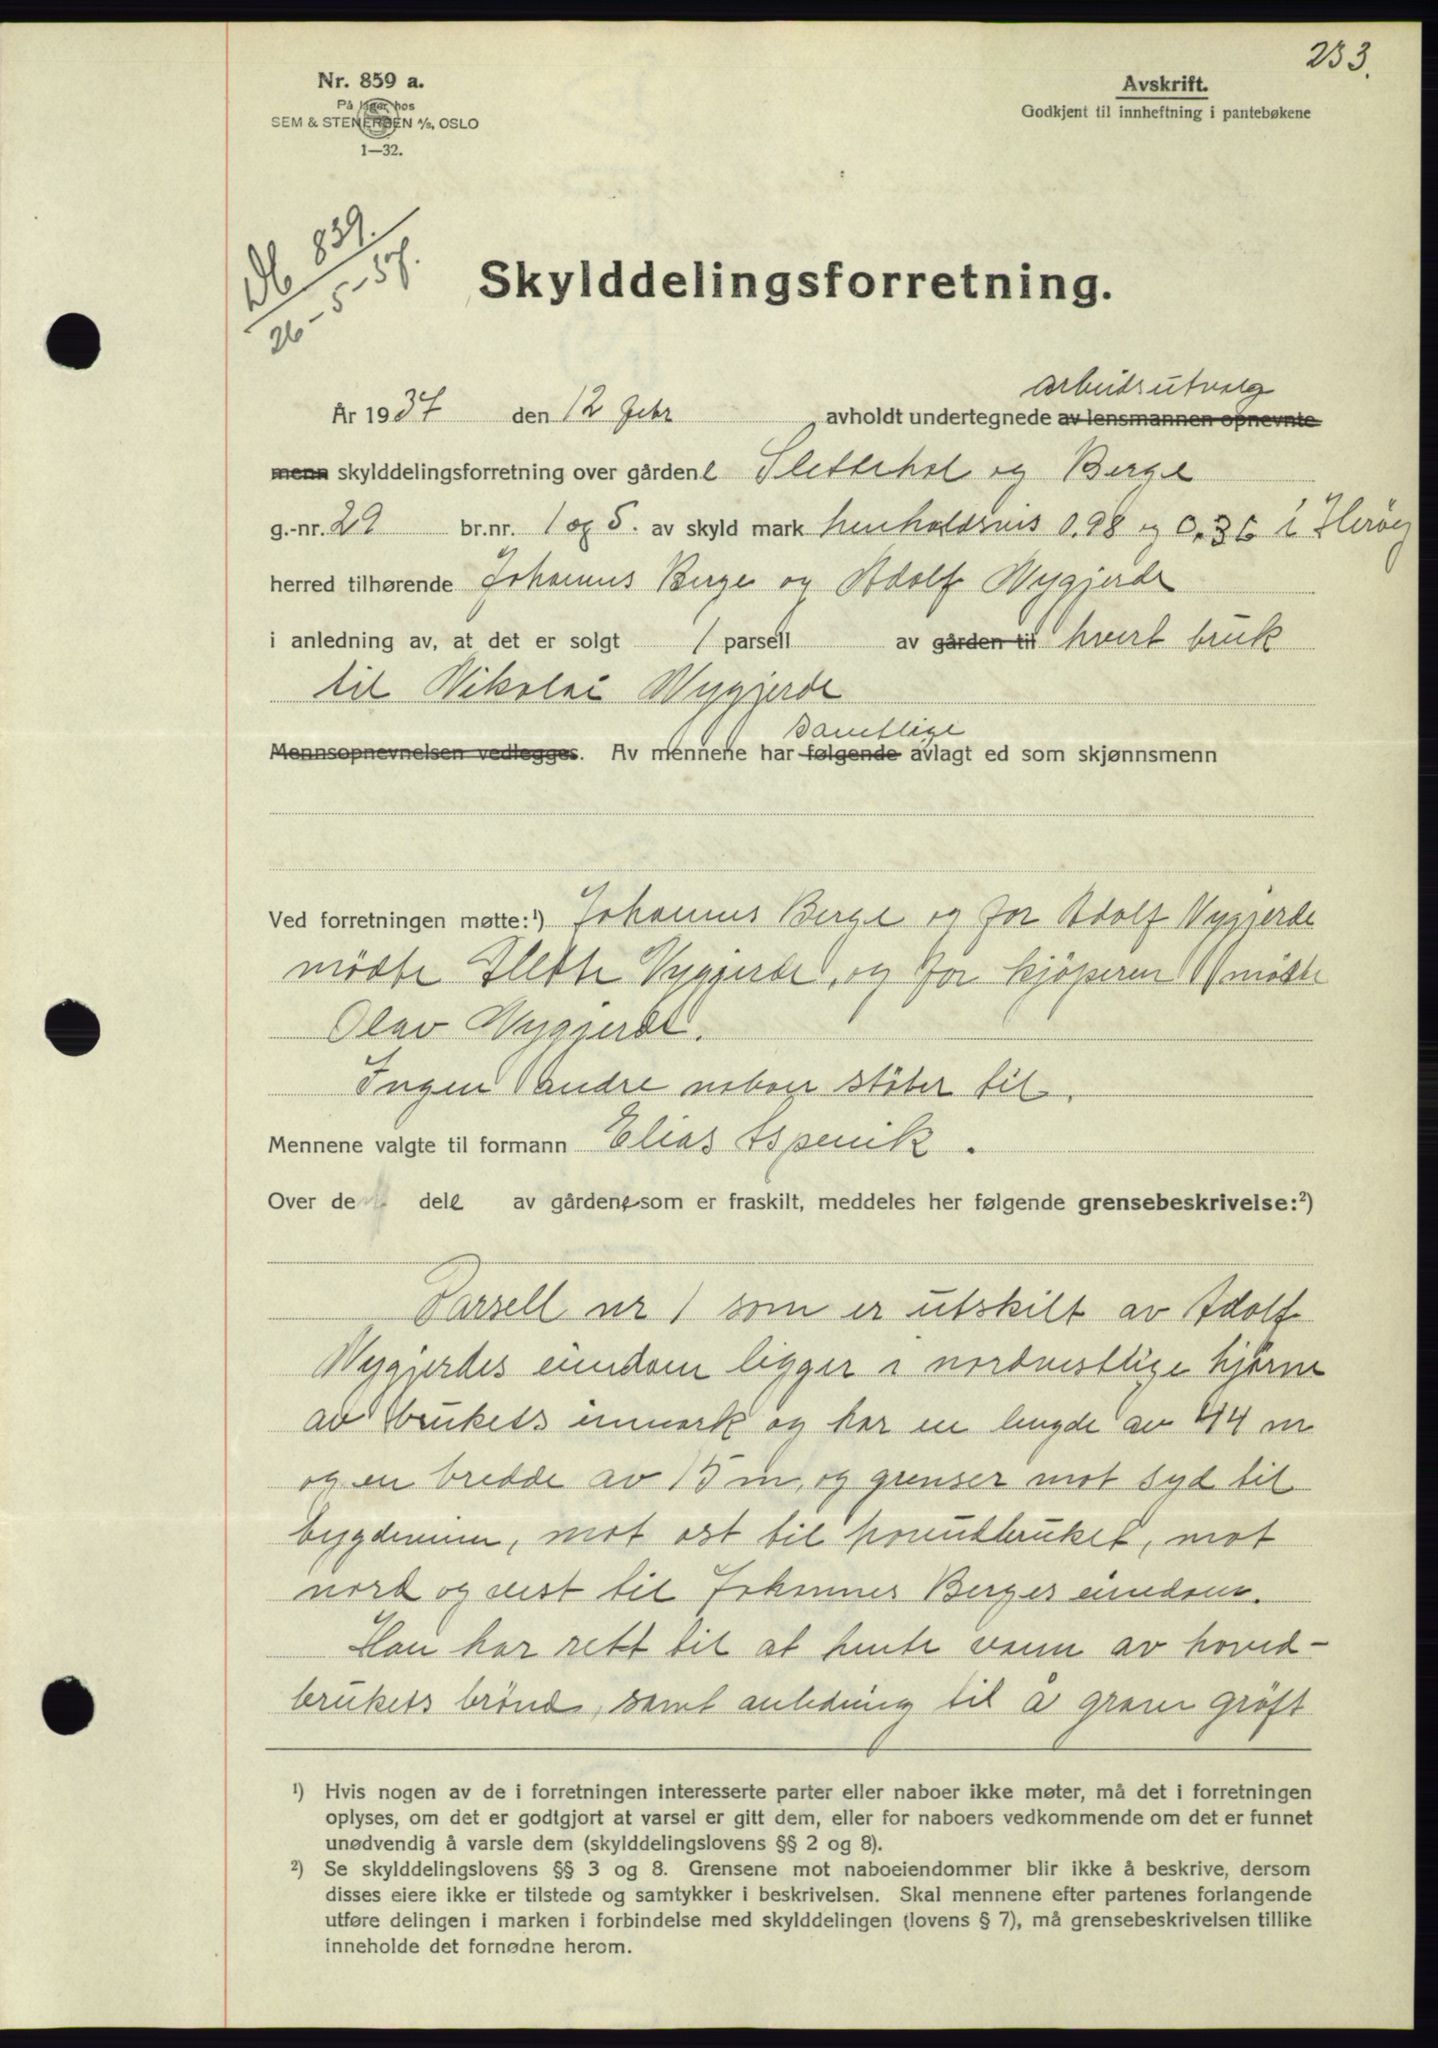 233.
Nr. 859 a.
På lager hos
SEM & STENERSEN A/S, OSLO
1—32.
Avskrift.
Godkjent til innheftning i pantebøkene
Db 839.
26-5-37.
Skylddelingsforretning.
arbeidsutvalg
År 1937 den 12 febr avholdt undertegnede av lensmannen opnevnte
menn skylddelingsforretning over gårdene Sletterhol og Berge
g.-nr. 29 br.nr. 1 og 5. av skyld mark henholdsvis 0.98 og 0.36 i Herøy
herred tilhørende Johannes Berge og Adolf Nygjerde
i anledning av, at det er solgt 1 parsell av gården til hvert bruk
til Nikolai Nygjerde
samtlige
Mennsopnevnelsen vedlegges. Av mennene har følgende avlagt ed som skjønnsmenn
Ved forretningen møtte:¹) Johannes Berge og for Adolf Nygjerde
mödte Nygjerde, og for kjöperen mödte
Olav Nygjerde.
Ingen andre naboer stöter til.
Mennene valgte til formann Elias Aspevik.
Over de dele av gårdene som er fraskilt, meddeles her følgende grensebeskrivelse:²)
Parsell nr 1 som er utskilt av Adolf
Nygjerdes eiendom ligger i nordvestlige hjørne
av brukets innmark og har en lengde av 44 m
og en bredde av 15 m, og grenser mot syd til
bygdeveien, mot øst til hovedbruket, mot
nord og vest til Johannes Berges eiendom.
Han har rett til at hente vann av hoved-
brukets brønd, samt anledning til å grave grøft
¹) Hvis nogen av de i forretningen interesserte parter eller naboer ikke møter, må det i forretningen
oplyses, om det er godtgjort at varsel er gitt dem, eller for naboers vedkommende om det er funnet
unødvendig å varsle dem (skylddelingslovens §§ 2 og 8).
²) Se skylddelingslovens §§ 3 og 8. Grensene mot naboeiendommer blir ikke å beskrive, dersom
disses eiere ikke er tilstede og samtykker i beskrivelsen. Skal mennene efter partenes forlangende
utføre delingen i marken i forbindelse med skylddelingen (lovens § 7), må grensebeskrivelsen tillike
inneholde det fornødne herom.